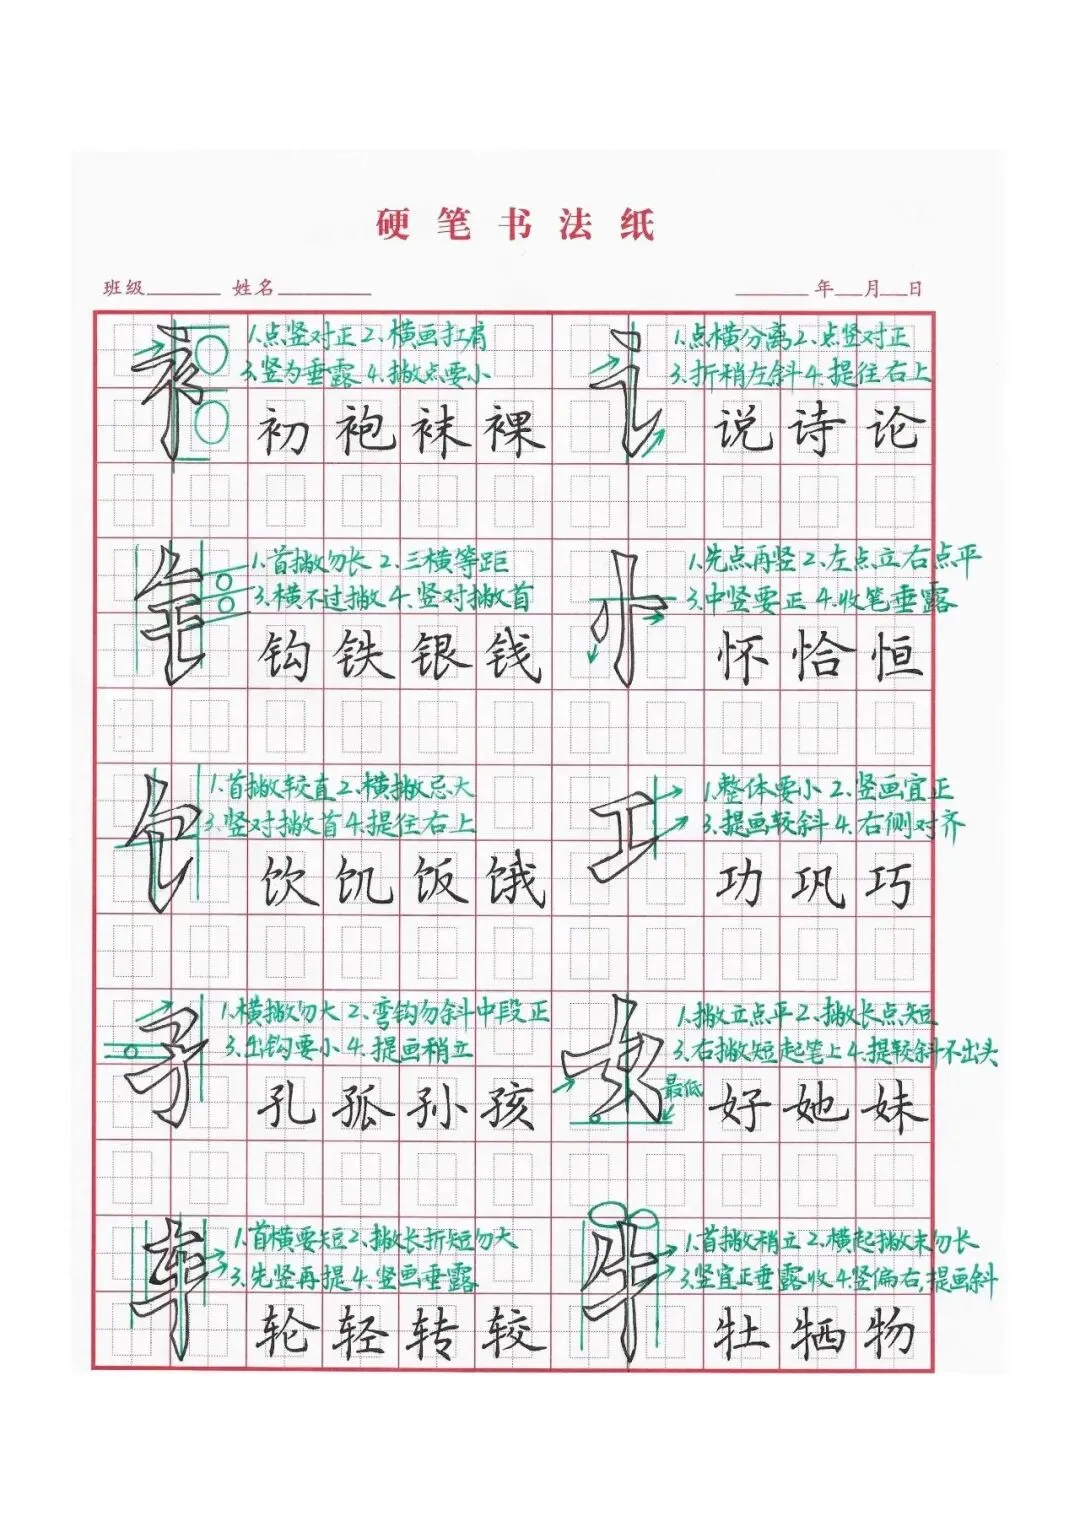 硬笔书法纸
班级 姓名 年 月 日
衤 1.点竖对正 2.横画扛肩
3.竖为垂露 4.撇点要小
初 袍 袜 裸
讠 1.点横分离 2.点竖对正
3.折稍左斜 4.提往右上
说 诗 论
钅 1.首撇勿长 2.三横等距
3.横不过撇 4.竖对撇首
钩 铁 银 钱
忄 1.先点再竖 2.左点立右点平
3.中竖要正 4.收笔垂露
怀 恰 恒
饣 1.首撇较直 2.横撇忌大
3.竖对撇首 4.提往右上
饮 饥 饭 饿
工 1.整体要小 2.竖画宜正
3.提画较斜 4.右侧对齐
功 巩 巧
子 1.横撇勿大 2.弯钩勿斜中段正
3.出钩要小 4.提画稍立
孔 孤 孙 孩
女 1.撇立点平 2.撇长点短
3.右撇短起笔上 4.提较斜不出头
最低
好 她 妹
车 1.首横要短 2.撇长折短勿大
3.先竖再提 4.竖画垂露
轮 轻 转 较
牛 1.首撇稍立 2.横起撇末勿长
3.竖宜正垂露收 4.竖偏右,提画斜
牡 牺 物